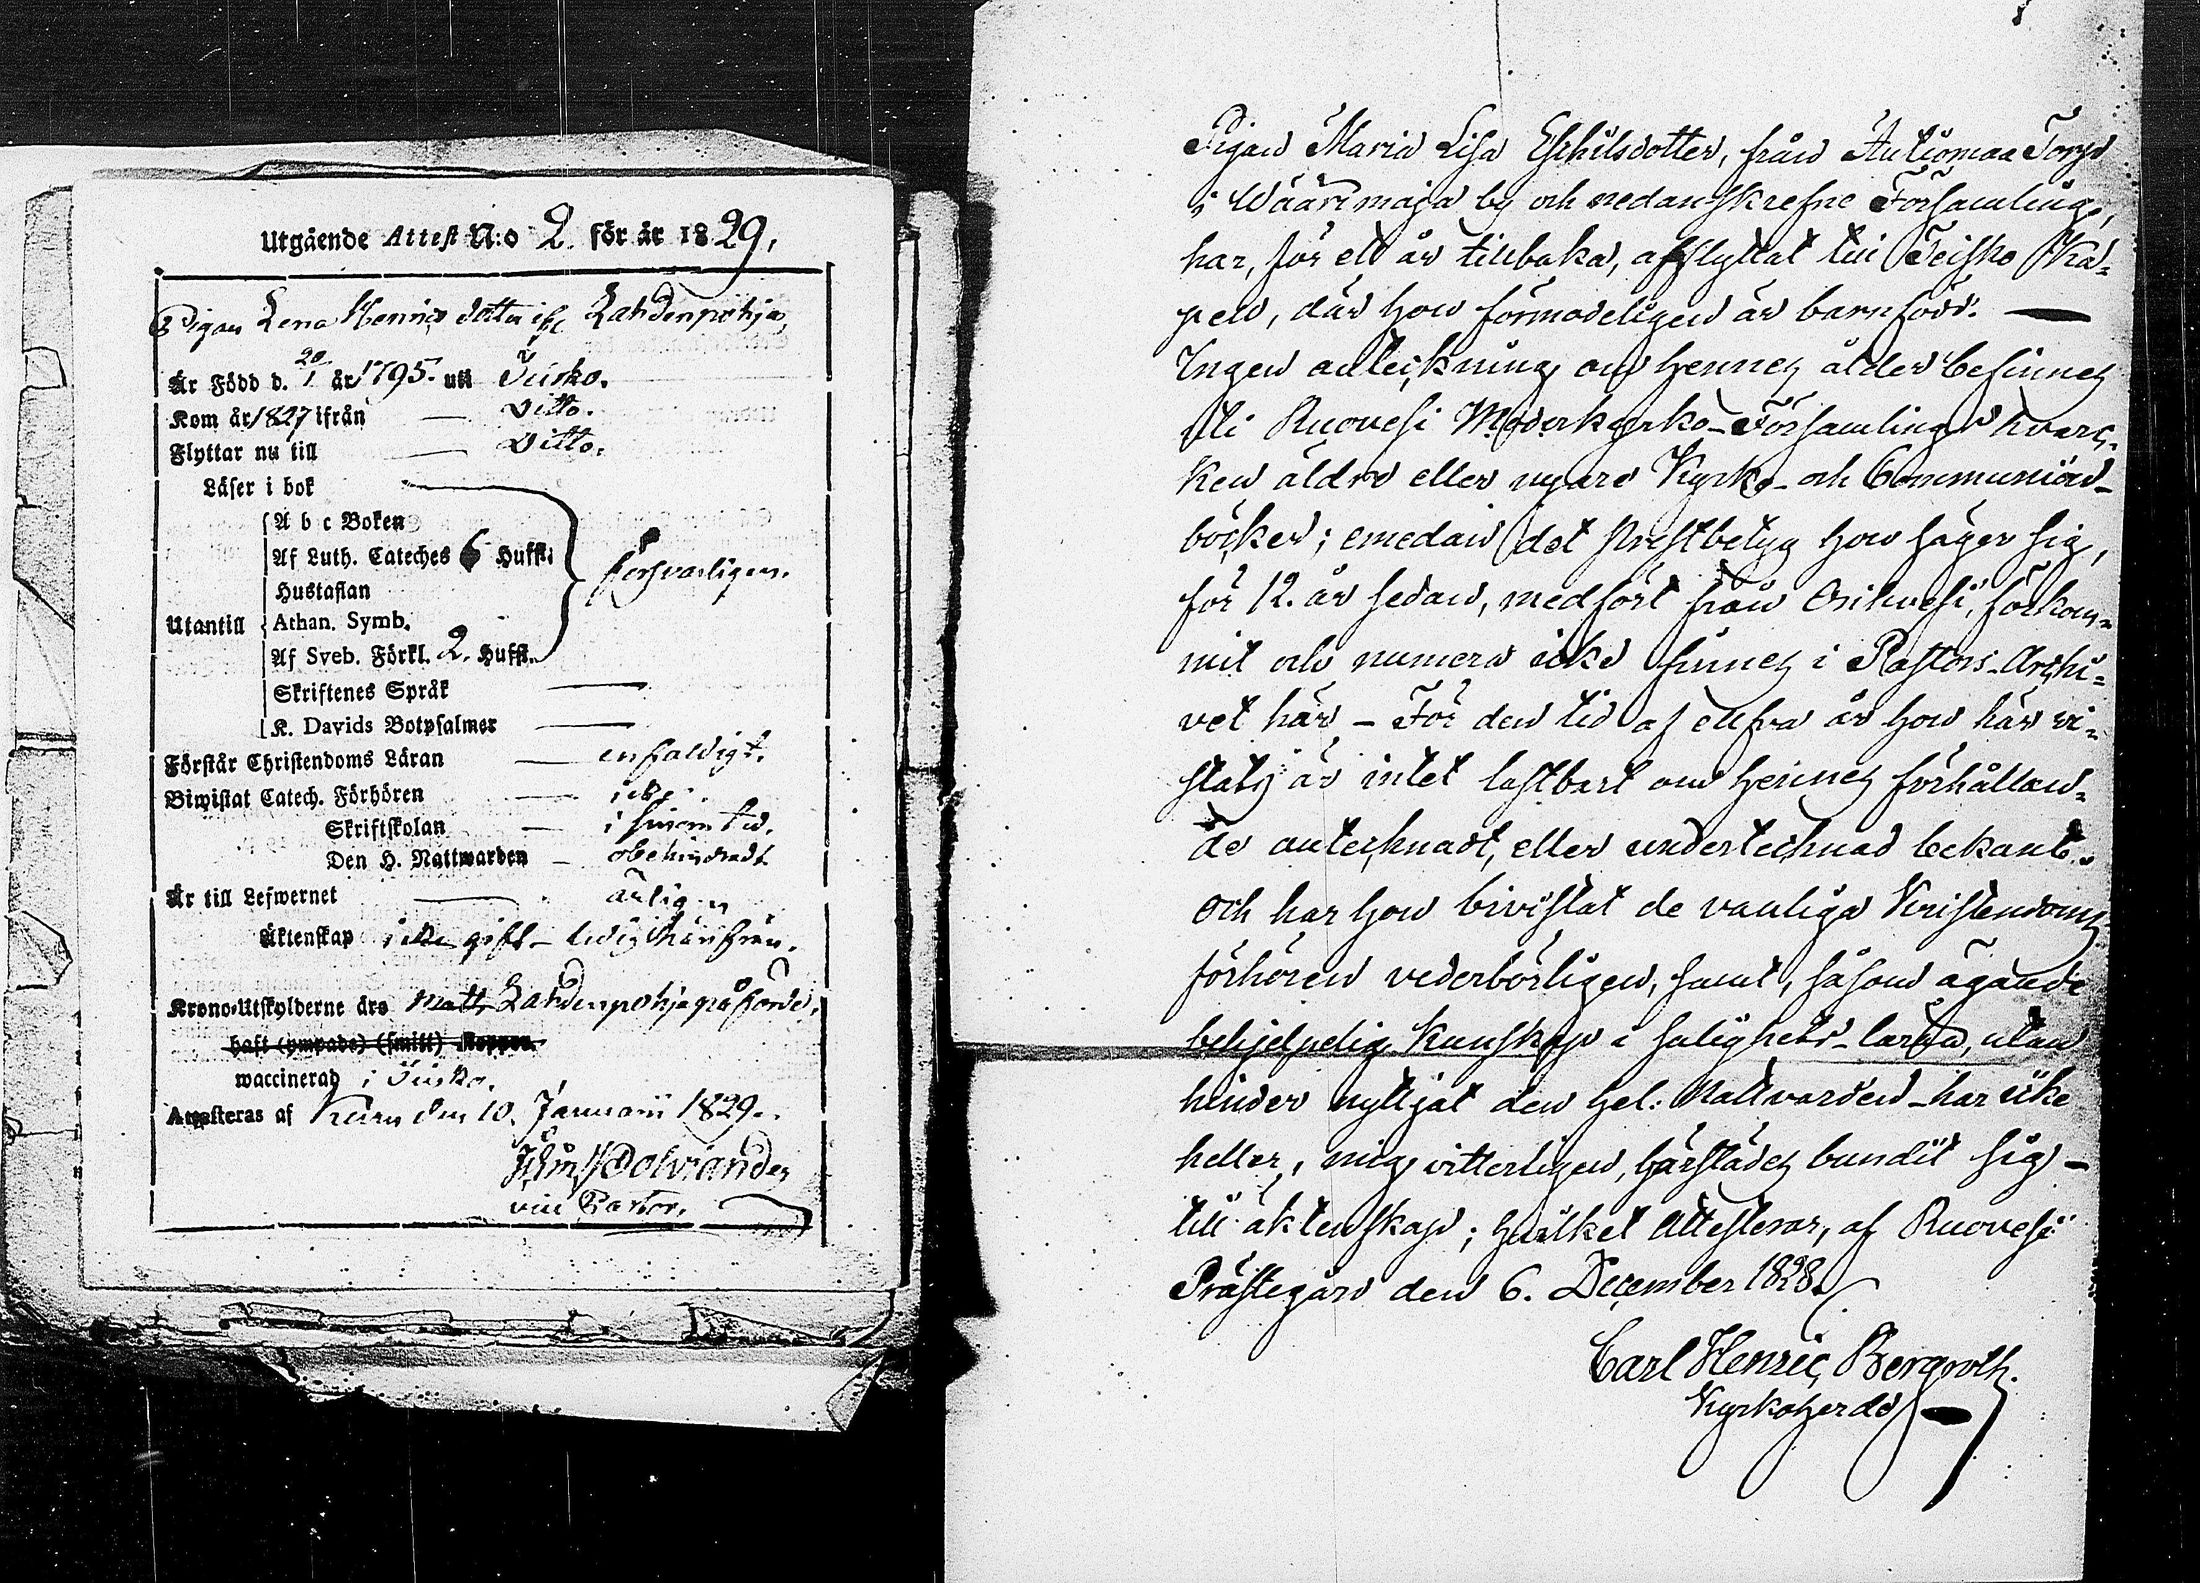 Utgående Attest N:o 2. för år 1829.
Pigan Lena Henricsdotter ifr. Lahdenpohja,
Är Född d. 20/1 år 1795. uti Teisko.
Kom år 1827 ifrån — Ditto.
Flyttar nu till — Ditto.
Läser i bok
A b c Boken
Af Luth. Cateches 6 Huffst.
försvarligen.
Hustaflan
Utantill Athan. Symb.
Af Sveb. Förkl. 2. Huffst.
Skriftenes Språk —
K. Davids Botpsalmer —
Förstår Christendoms Läran — enfaldigt.
Biwistat Catech. Förhören — icke.
Skriftskolan — i sinom tid.
Den H. Nattwarden — obehindradt
Är till Lefwernet — ärlig
Äktenskap icke gift – ledig härifrån.
Krono-Utskylderne äro Matts Lahdenpohja påförde.
haft (ympade) (smitt) Koppor.
waccinerad i Teisko.
Attesteras af Kuru den 10. Januarii 1829.
Dolviander
vice Pastor.
Pigan Maria Lisa Eskilsdotter, från Autiomaa Torp
i Wäärimaja by och nedanskrefne Församling,
har, för ett år tillbaka, afflyttat till Teisko Ka-
pell, där hon förmodeligen är barnfödd. —
Ingen anteckning om hennes ålder befinnes
uti Ruovesi Moderkyrko-Församlings hvarc-
ken äldre eller nyare Kyrko- och Communion-
böcker; emedan det prestbetyg hon säger sig,
för 12. år sedan, medfört från Orihvesi, förkom-
mit och numera icke finnes i Pastors-Archi-
vet här – För den tid af ellfva år hon här vi-
stats är intet lastbart om hennes förhållan-
de antecknadt, eller undertecknad bekant.
och har hon bivistat de vanliga Kristendoms
förhören vederbörligen, samt, såsom ägande
behjelpelig kunskap i salighets-läran, utan
hinder nyttjat den hel: Nattvarden – har icke
heller, mig vitterligen, härstädes bundit sig –
till äktenskap; hvilket attesteras, af Ruovesi
Prästegård den 6. December 1828.
Carl Henric Bergroth.
Kyrkoherde